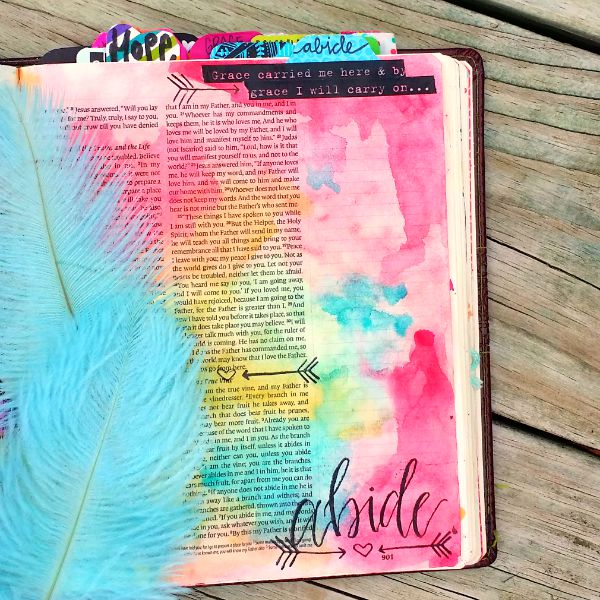 Hope
GRACE
abide
Grace carried me here & by
grace I will carry on...
Jesus answered, "Will you lay
for me? Truly, truly, I say to you,
crow till you have denied
and the Life
be troubled. Believe
in me. "In my
it were not
to prepare a
prepare a place
will take you
that I am in my Father, and you in me, and I in
you. 21Whoever has my commandments and
keeps them, he it is who loves me. And he who
loves me will be loved by my Father, and I will
love him and manifest myself to him." 22Judas
(not Iscariot) said to him, "Lord, how is it that
you will manifest yourself to us, and not to the
world?" 23Jesus answered him, "If anyone loves
me, he will keep my word, and my Father will
love him, and we will come to him and make
our home with him. 24Whoever does not love me
does not keep my words. And the word that you
hear is not mine but the Father's who sent me.
25"These things I have spoken to you while
I am still with you. 26But the Helper, the Holy
Spirit, whom the Father will send in my name,
he will teach you all things and bring to your
remembrance all that I have said to you. 27Peace
I leave with you; my peace I give to you. Not as
the world gives do I give to you. Let not your
hearts be troubled, neither let them be afraid.
28You heard me say to you, 'I am going away,
and I will come to you.' If you loved me, you
would have rejoiced, because I am going to the
Father, for the Father is greater than I. 29And
now I have told you before it takes place, so that
when it does take place you may believe. 30I will
no longer talk much with you, for the ruler of
this world is coming. He has no claim on me,
but I do as the Father has commanded me, so
that the world may know that I love the Father.
go from here.
True Vine
am the true vine, and my Father is
vinedresser. 2Every branch in me
does not bear fruit he takes away, and
branch that does bear fruit he prunes,
may bear more fruit. 3Already you are
because of the word that I have spoken to
in me, and I in you. As the branch
bear fruit by itself, unless it abides in
vine, neither can you, unless you abide
I am the vine; you are the branches.
Whoever abides in me and I in him, he it is that
bears much fruit, for apart from me you can do
nothing. 6If anyone does not abide in me he is
thrown away like a branch and withers; and
branches are gathered, thrown into the
If you abide in me, and my words
in you, ask whatever you wish, and it will
done for you. 8By this my Father is glorified
abide
901